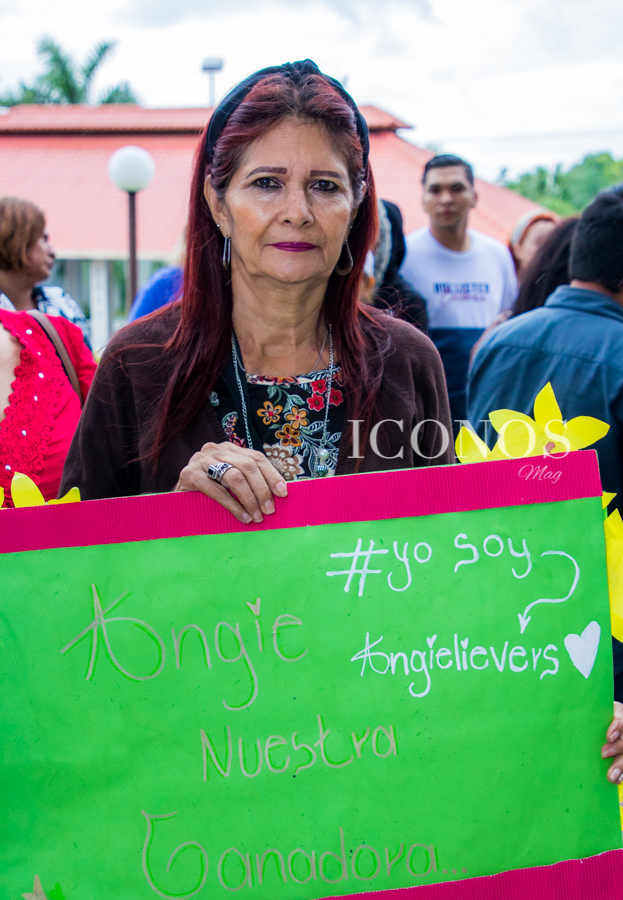 HOLLISTER
ICONOS
Mag
#yo soy
Angielievers
Angie
Nuestra
Ganadora...